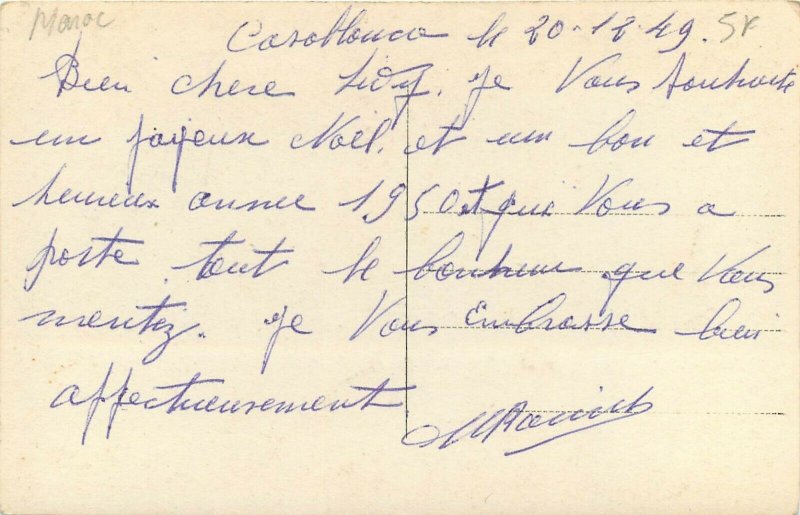 Maroc
Casablanca le 20.12.49. 5K
Bien chere je Vous souhaite
un joyeux Noël. et un bon et
heureux annee 1950 et que Vous a
porte tout le bonheur que Vous
meritez. Je Vous Embrasse bien
affectueusement